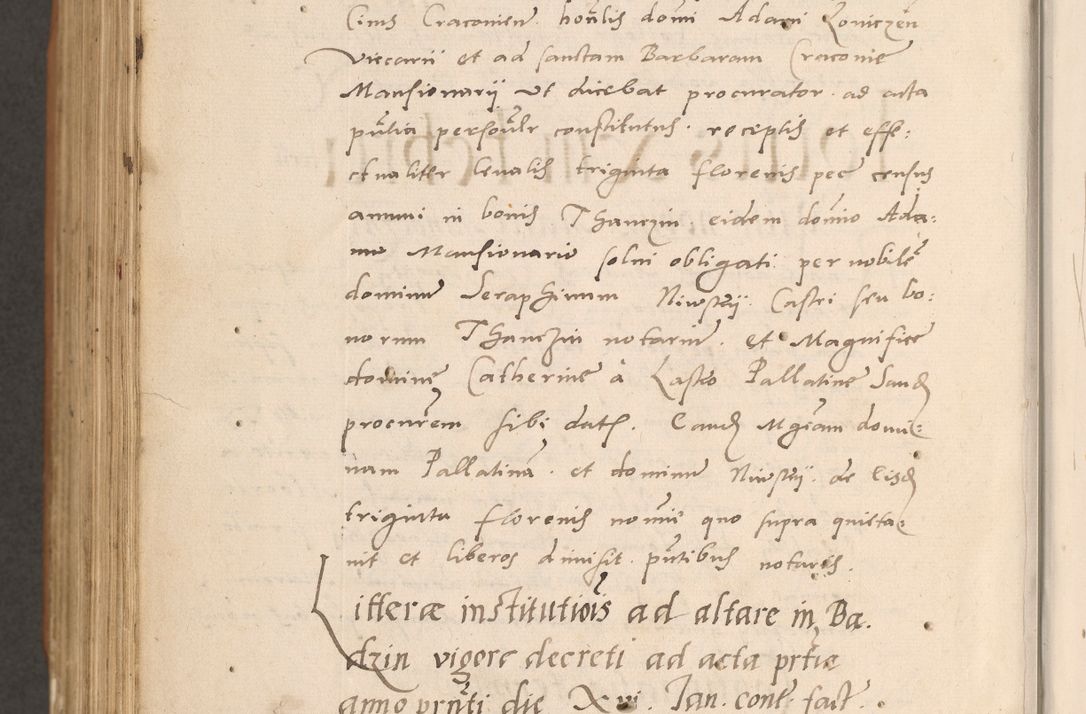 Cinis Cracovien. honlis domi Adami Loniczen
Viccarii et ad sanctam Barbaram Cracovie
Mansionarij ut dicebat procurator ad acta
pntia personlr constitutus. receptis et effe:
ctualiter levatis triginta florenis pec census
annui in bonis Thanczin eidem domino Ada:
mo Mansionario solui obligati per nobile
dominum Seraphinum Niwsky Castri seu bo:
norum Thanczin notarium. et Magnifice
domine Catherine à Lasko Pallatine Sand
procurem sibi dats. Eand Mgcam domi:
nam Pallatinam. et dominum Niwsky. de Eisd
triginta florenis nomie quo supra quieta:
uit et liberos dimisit. pntibus notariis.
Litteræ institutiois ad altare in Ba.
dzin vigore decreti ad acta prtie
anno prnti die Xvi. Jan. cont. fact.